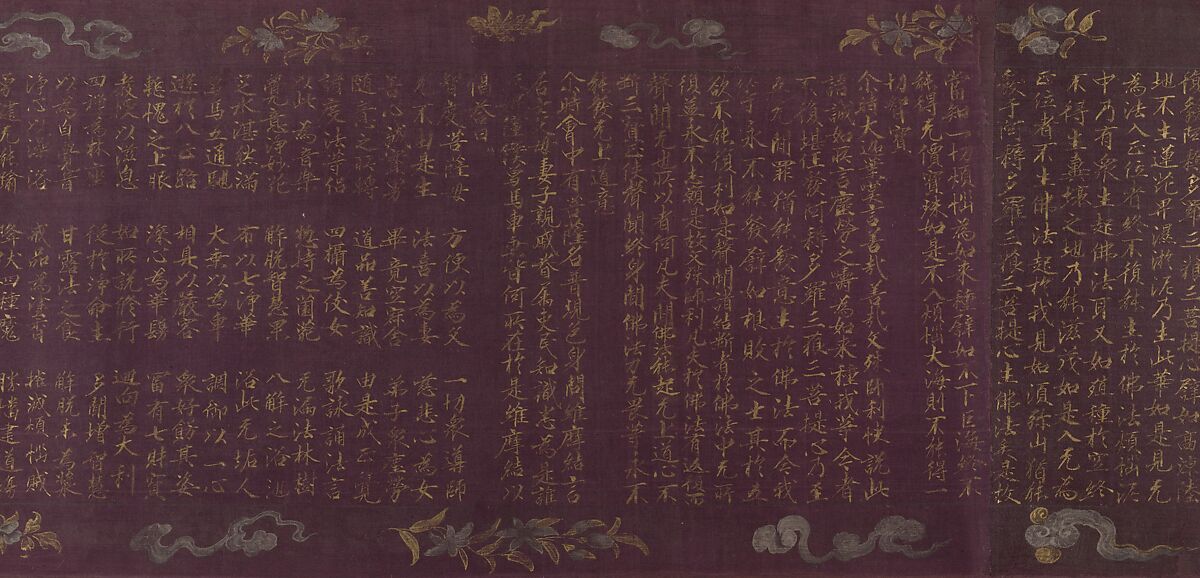 地不生蓮花卑濕淤泥乃生此華如是見无
為法入正位者終不復能生於佛法煩惱泥
中乃有衆生起佛法耳又如殖種於空終
不得生糞壤之地乃能滋茂如是入无為
正位者不生佛法起於我見如須弥山猶能
發于阿耨多羅三藐三菩提心生佛法矣是故
當知一切煩惱為如來種譬如不下巨海終不
能得无價寶珠如是不入煩惱大海則不能得一
切智寶
尒時大迦葉歎言善哉善哉文殊師利快說此
語誠如所言塵勞之疇為如來種我等今者
不復堪任發阿耨多羅三藐三菩提心乃至
五无間罪猶能發意生於佛法而今我
等永不能發譬如根敗之士其於五
欲不能復利如是聲聞諸結斷者於佛法中无所
復益永不志願是故文殊師利凡夫於佛法有返復
聲聞无也所以者何凡夫聞佛法能起无上道心不
斷三寶正使聲聞終身聞佛法力无畏等永不
能發无上道意
尒時會中有菩薩名普現色身問維摩詰言
居士父母妻子親戚眷屬吏民知識悉為是誰
奴婢僮僕象馬車乘皆何所在於是維摩詰以
偈答曰
智度菩薩母 方便以為父 一切衆導師
无不由是生 法喜以為妻 慈悲心為女
善心誠實男 畢竟空寂舍 弟子衆塵勞
隨意之所轉 道品善知識 由是成正覺
諸度法等侶 四攝為伎女 歌詠誦法言
以此為音樂 惣持之園苑 无漏法林樹
覺意淨妙花 解脫智慧果 八解之浴池
定水湛然滿 布以七淨華 浴此无垢人
象馬五通馳 大乘以為車 調御以一心
遊於八正路 相具以嚴容 衆好飾其姿
慚愧之上服 深心為華鬘 冨有七財寶
教授以滋息 如所說修行 迴向為大利
四禪為床座 從於淨命生 多聞增智慧
以為自覺音 甘露法之食 解脫味為漿
淨心以澡浴 戒品為塗香 摧滅煩惱賊
勇健无能踰 降伏四種魔 勝幡建道場